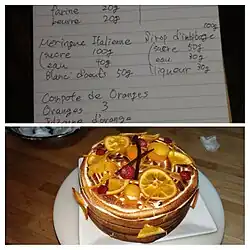 farine 20g
beurre 20g
100g
Meringue Italienne Sirop d'imbibage
(sucre 100g (sucre 50g
(eau 40g (eau 40g
Blanc d'oeuf 50g liqueur 30g
Compote de Oranges
Oranges 3
d'orange